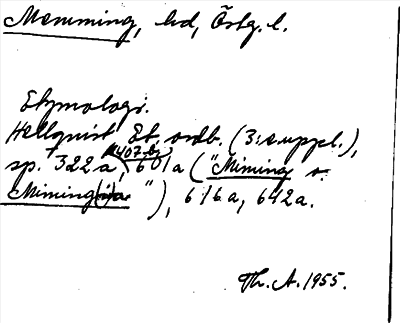 Memming, hd, Östg. l.
Etymologi.
Hellquist Et. ordb. (3:e uppl.),
407 b,
sp. 322a, 601a ("Miming s.
Miming(a)"), 616a, 642a.
Th. A. 1955.